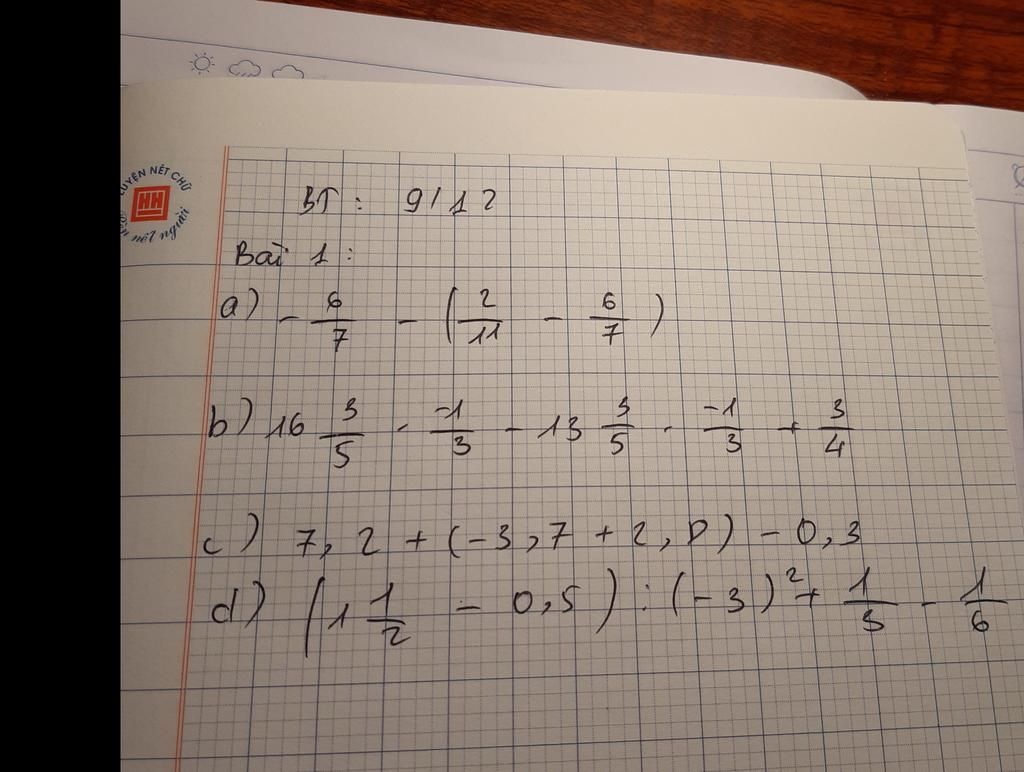 LUYỆN NÉT CHỮ
HH
nết người
BT : 9/12
Bài 1 :
a) - 6/7 - (2/11 - 6/7)
b) 16 3/5 . -1/3 - 13 3/5 . -1/3 + 3/4
c) 7,2 + (-3,7 + 2,8) - 0,3
d) (1 1/2 - 0,5) : (-3)² + 1/3 - 1/6